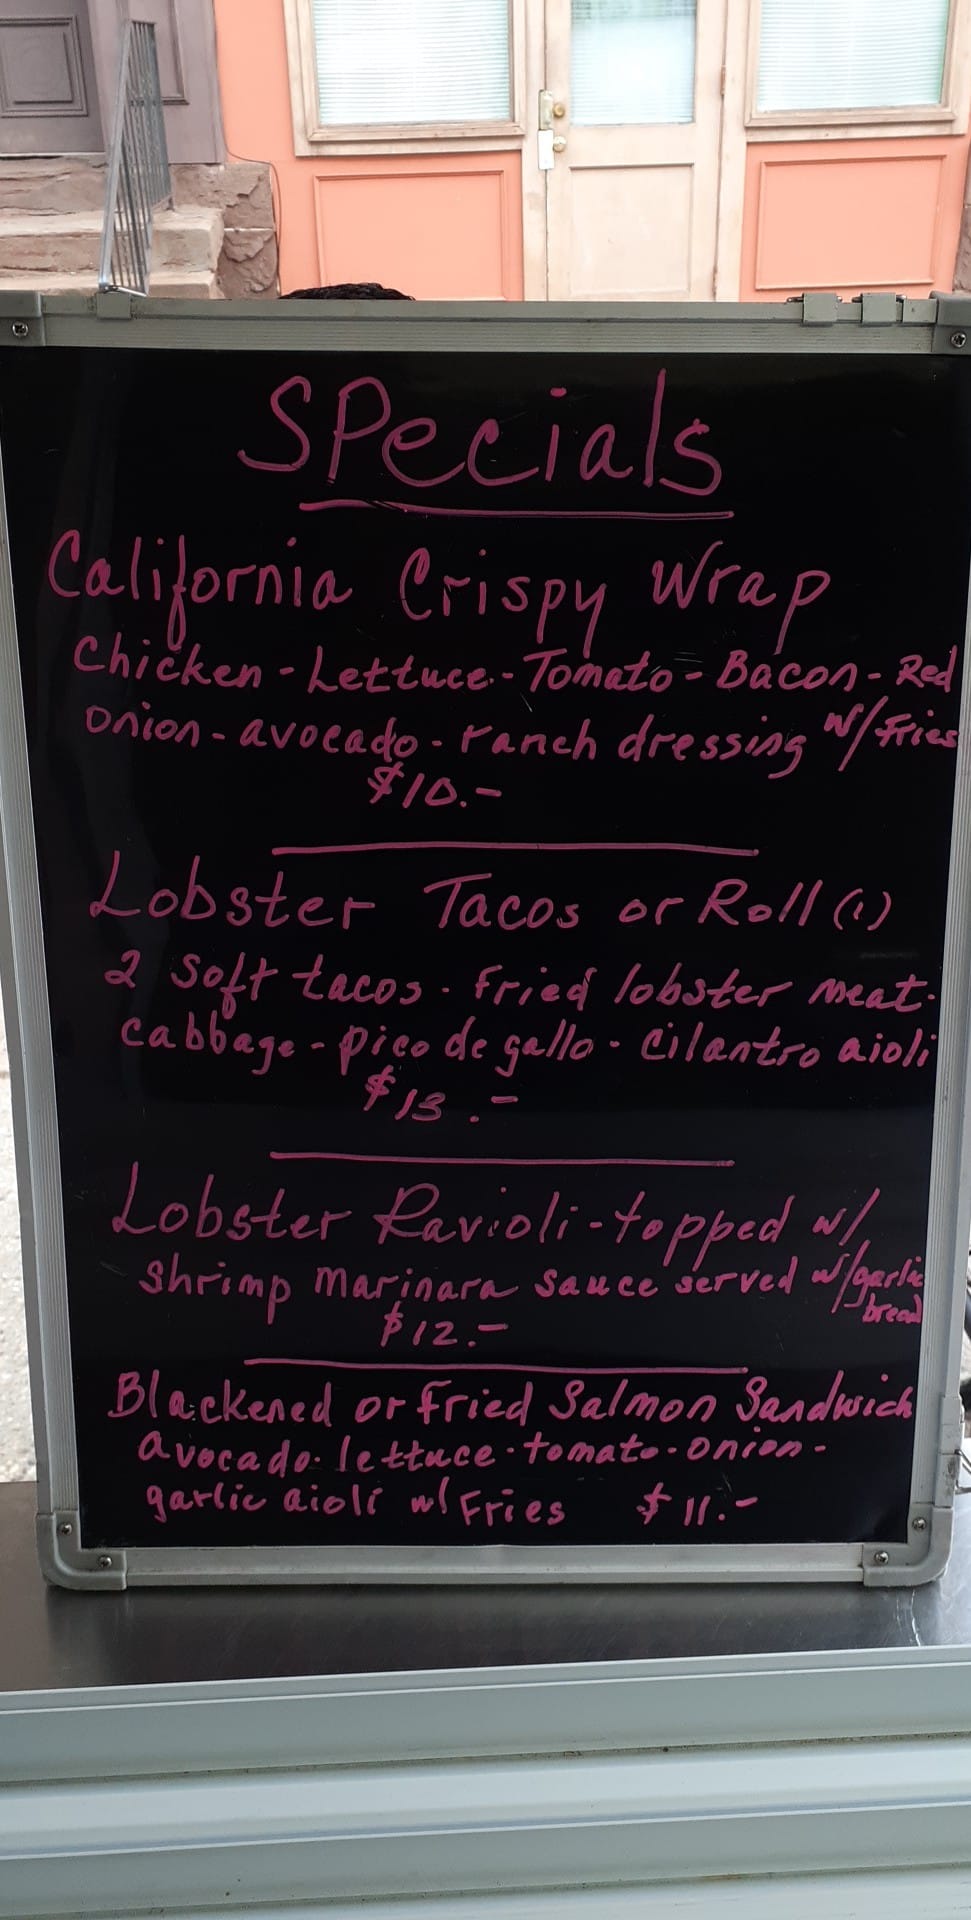 SPecials
California Crispy Wrap
Chicken - Lettuce - Tomato - Bacon - Red
onion - avocado - ranch dressing w/ Fries
$10.-
Lobster Tacos or Roll (1)
2 soft tacos - Fried lobster meat -
Cabbage - pico de gallo - Cilantro aioli
$13.-
Lobster Ravioli - topped w/
shrimp marinara sauce served w/ garlic
bread
$12.-
Blackened or Fried Salmon Sandwich
avocado - lettuce - tomato - onion -
garlic aioli w/ Fries $11.-